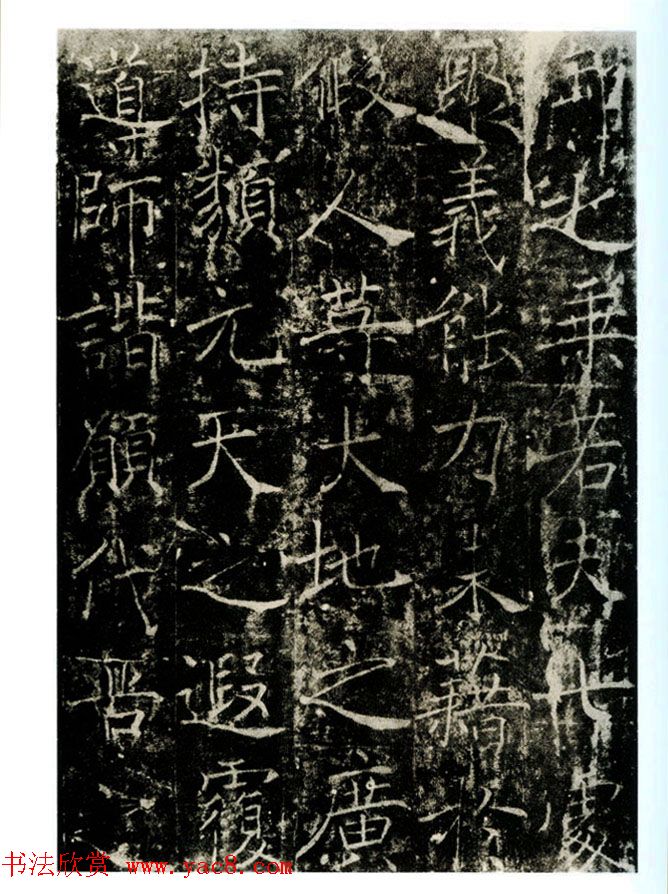 之乘若夫處
取義能力未藉於
假人等大地之廣
持類元天之遐覆
導師諧願代
书法欣赏 www.yac8.com